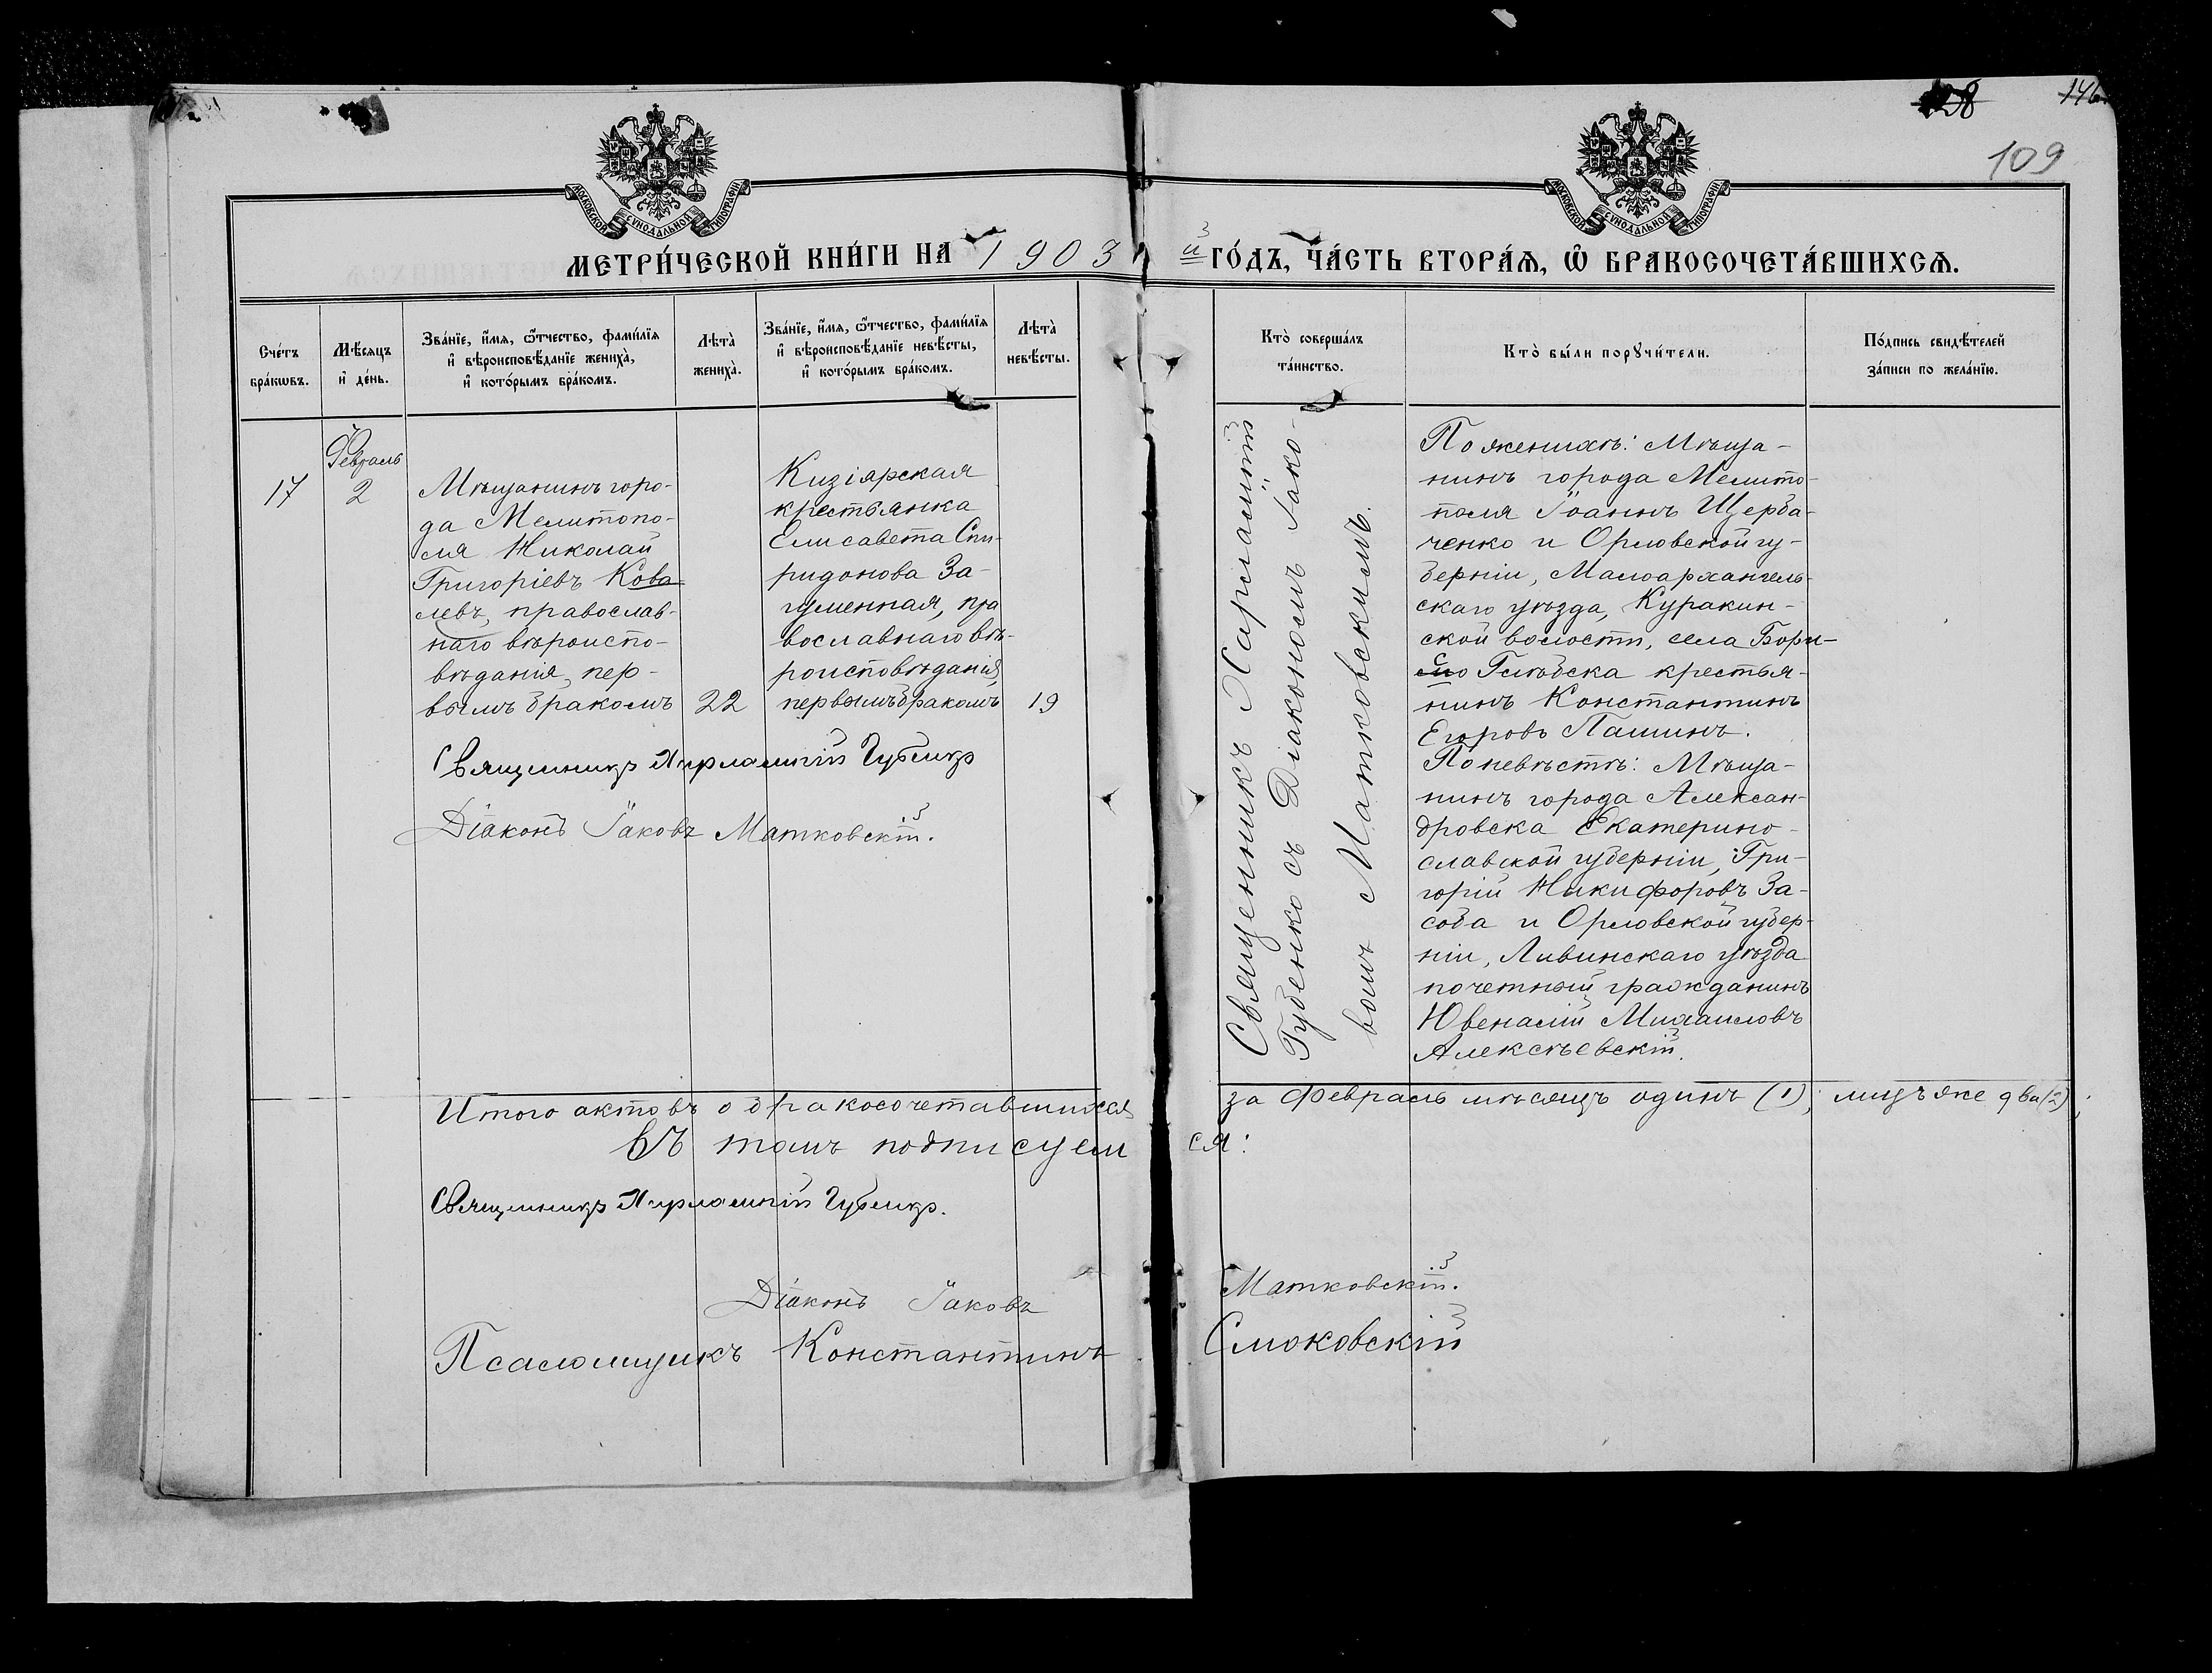 109
МОСКОВСКОЙ СѴНОДАЛЬНОЙ ТИПОГРАФІИ
МОСКОВСКОЙ СѴНОДАЛЬНОЙ ТИПОГРАФІИ
МЕТРИ́ЧЕСКОЙ КНИ́ГИ НА 1903 й ГО́ДЪ, ЧА́СТЬ ВТОРА́Ѧ, Ѽ БРАКОСОЧЕТА́ВШИХСѦ.
Сче́тъ
бра́кωвъ.
Мѣ́сѧцъ
и҆ де́нь.
Зва́нїе, и҆́мѧ, ѻ҆́тчество, фами́лїѧ
и҆ вѣроисповѣ́данїе жениха̀,
и҆ кото́рымъ бра́комъ.
Лѣта̀
жениха̀.
Зва́нїе, и҆́мѧ, ѻ҆́тчество, фами́лїѧ
и҆ вѣроисповѣ́данїе невѣ́сты,
и҆ кото́рымъ бра́комъ.
Лѣта̀
невѣ́сты.
Кто̀ соверша́лъ
та́инство.
Кто̀ бы́ли порꙋчи́тели.
По́дпись свидѣ́телей
за́писи по жела́нїю.
17
Февраль
2
Мѣщанинъ горо-
да Мелитопо-
ля Николай
Григоріевъ Кова-
левъ, православ-
наго вѣроиспо-
вѣданія, пер-
вымъ бракомъ
22
Кизіярская
крестьянка
Елисавета Спи-
ридонова За-
гуменная, пра
вославнаго вѣ-
роисповѣданія,
первымъ бракомъ
19
Священникъ Харлампій Губенко
Діаконъ Іаковъ Матковскій.
Священникъ Харлампій
Губенко съ Діакономъ Іако-
вомъ Матковскимъ.
По женихѣ: Мѣща-
нинъ города Мелито-
поля Іоаннъ Щерба-
ченко и Орловской гу-
берніи, Малоархангель-
скаго уѣзда, Куракин-
ской волости, села Бори-
со Глѣбска крестья-
нинъ Константинъ
Егоровъ Пашинъ.
По невѣстѣ: Мѣща-
нинъ города Алексан-
дровска Екатерино-
славской губерніи, Гри-
горій Никифоровъ За-
соба и Орловской губер-
ніи, Ливинскаго уѣзда
почетный гражданинъ
Ювеналій Михаиловъ
Алексѣевскій.
Итого актовъ о бракосочетавшихся за Февраль мѣсяцъ одинъ (1), лицъ же два (2);
въ томъ подписуемся:
Священникъ Харлампій Губенко.
Діаконъ Іаковъ Матковскій.
Псаломщикъ Константинъ Смоковскій